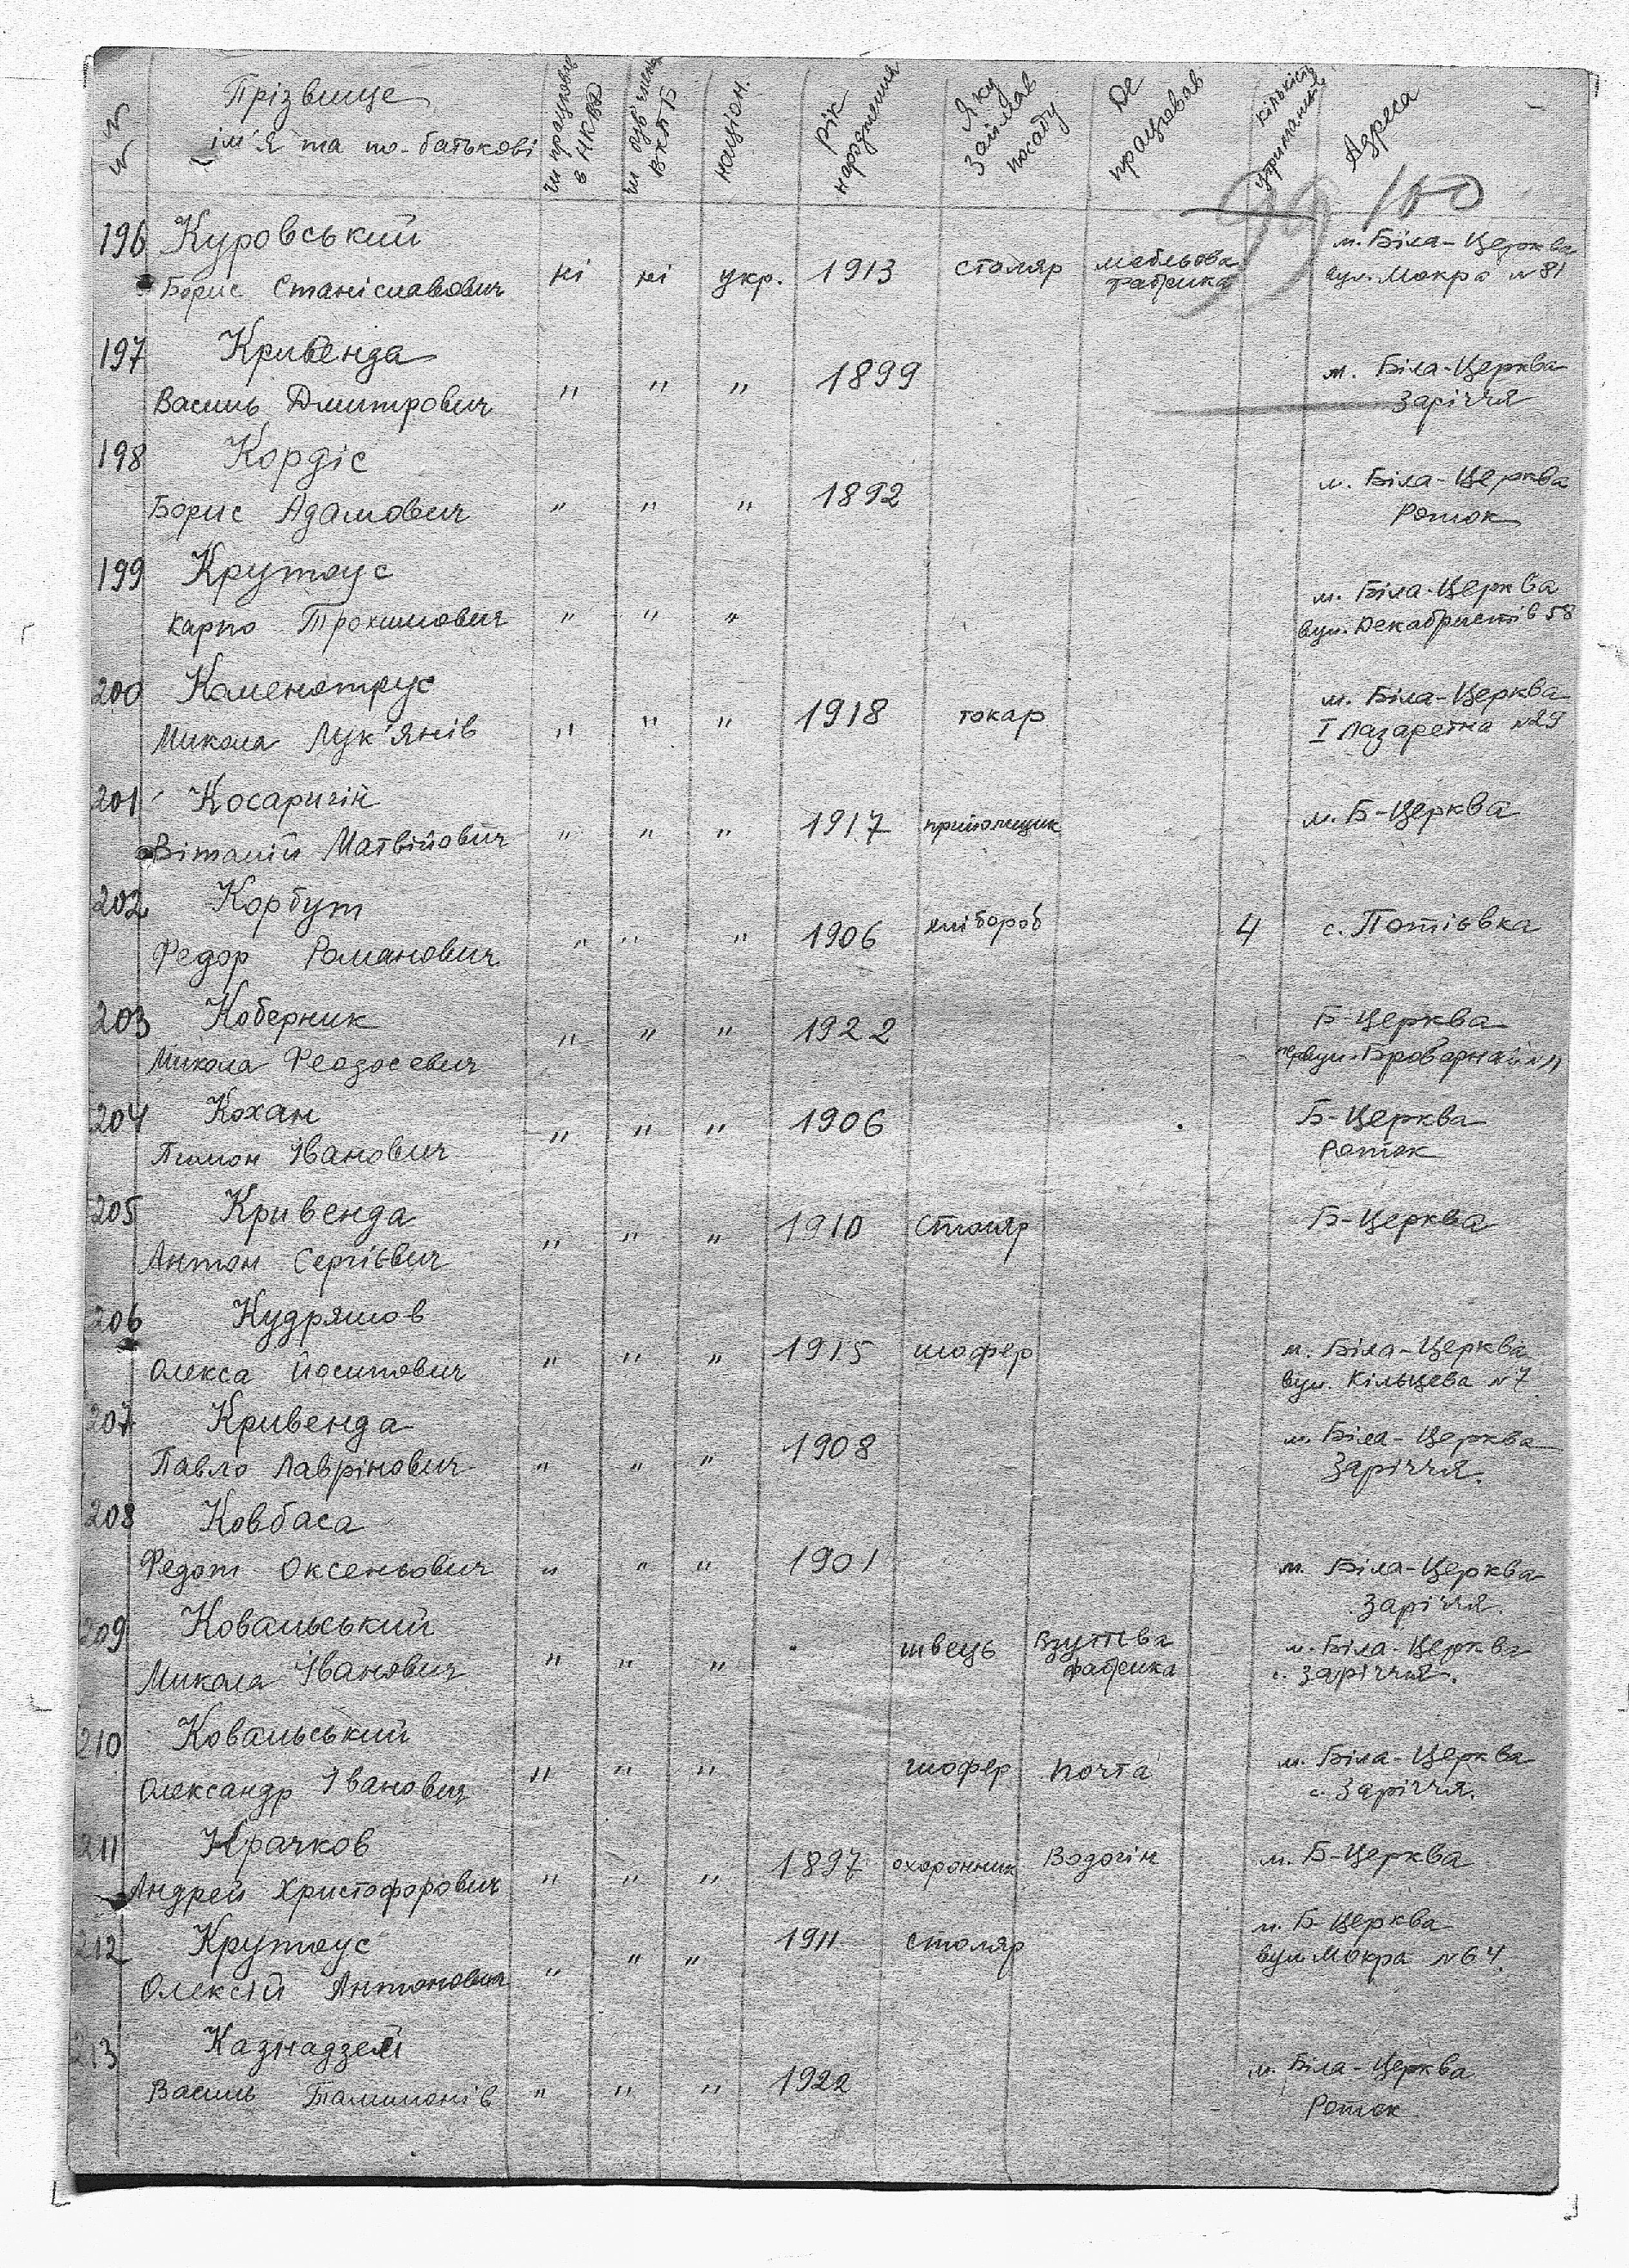 №№
Прізвище
ім'я та по-батькові
чи працював в НКВД
чи був членом ВКПБ
націон.
Рік народження
Яку займав посаду
Де працював
кількість утриманців
Адреса
99 100
196 Куровський
Борис Станіславович ні ні укр. 1913 столяр мебльова фабрика м. Біла-Церква вул. Мокра №81
197 Кривенда
Василь Дмитрович " " " 1899 м. Біла-Церква Заріччя
198 Кордіс
Борис Адамович " " " 1892 м. Біла-Церква Роток
199 Крутоус
Карпо Трохимович " " " м. Біла-Церква вул. Декабристів 58
200 Каменотрус
Микола Лук'янів " " " 1918 токар м. Біла-Церква I Лазаретна №29
201 Косаригін
Віталій Матвійович " " " 1917 м. Б-Церква
202 Корбут
Федор Романович " " " 1906 хлібороб 4 с. Потіївка
203 Коберник
Микола Феодосевич " " " 1922 Б-Церква
204 Кохан
Пимон Іванович " " " 1906 Б-Церква Роток
205 Кривенда
Антон Сергієвич " " " 1910 Столяр Б-Церква
206 Кудряшов
Олекса Йосипович " " " 1915 шофер м. Біла-Церква вул. Кільцева №7
207 Кривенда
Павло Лаврінович " " " 1908 м. Біла-Церква Заріччя.
208 Ковбаса
Федот Оксеньович " " " 1901 м. Біла-Церква Заріччя.
209 Ковальський
Микола Іванович " " " швець Взуттєва фабрика м. Біла-Церква с. Заріччя.
210 Ковальський
Олександр Іванович " " " шофер Почта м. Біла-Церква с. Заріччя.
211 Крачков
Андрей Христофорович " " " 1897 охоронник Водогін м. Б-Церква
212 Крутоус
Олексій Антонович " " " 1911 столяр м. Б-Церква вул. Мокра №64.
213
Василь " " " 1922 м. Біла-Церква Роток